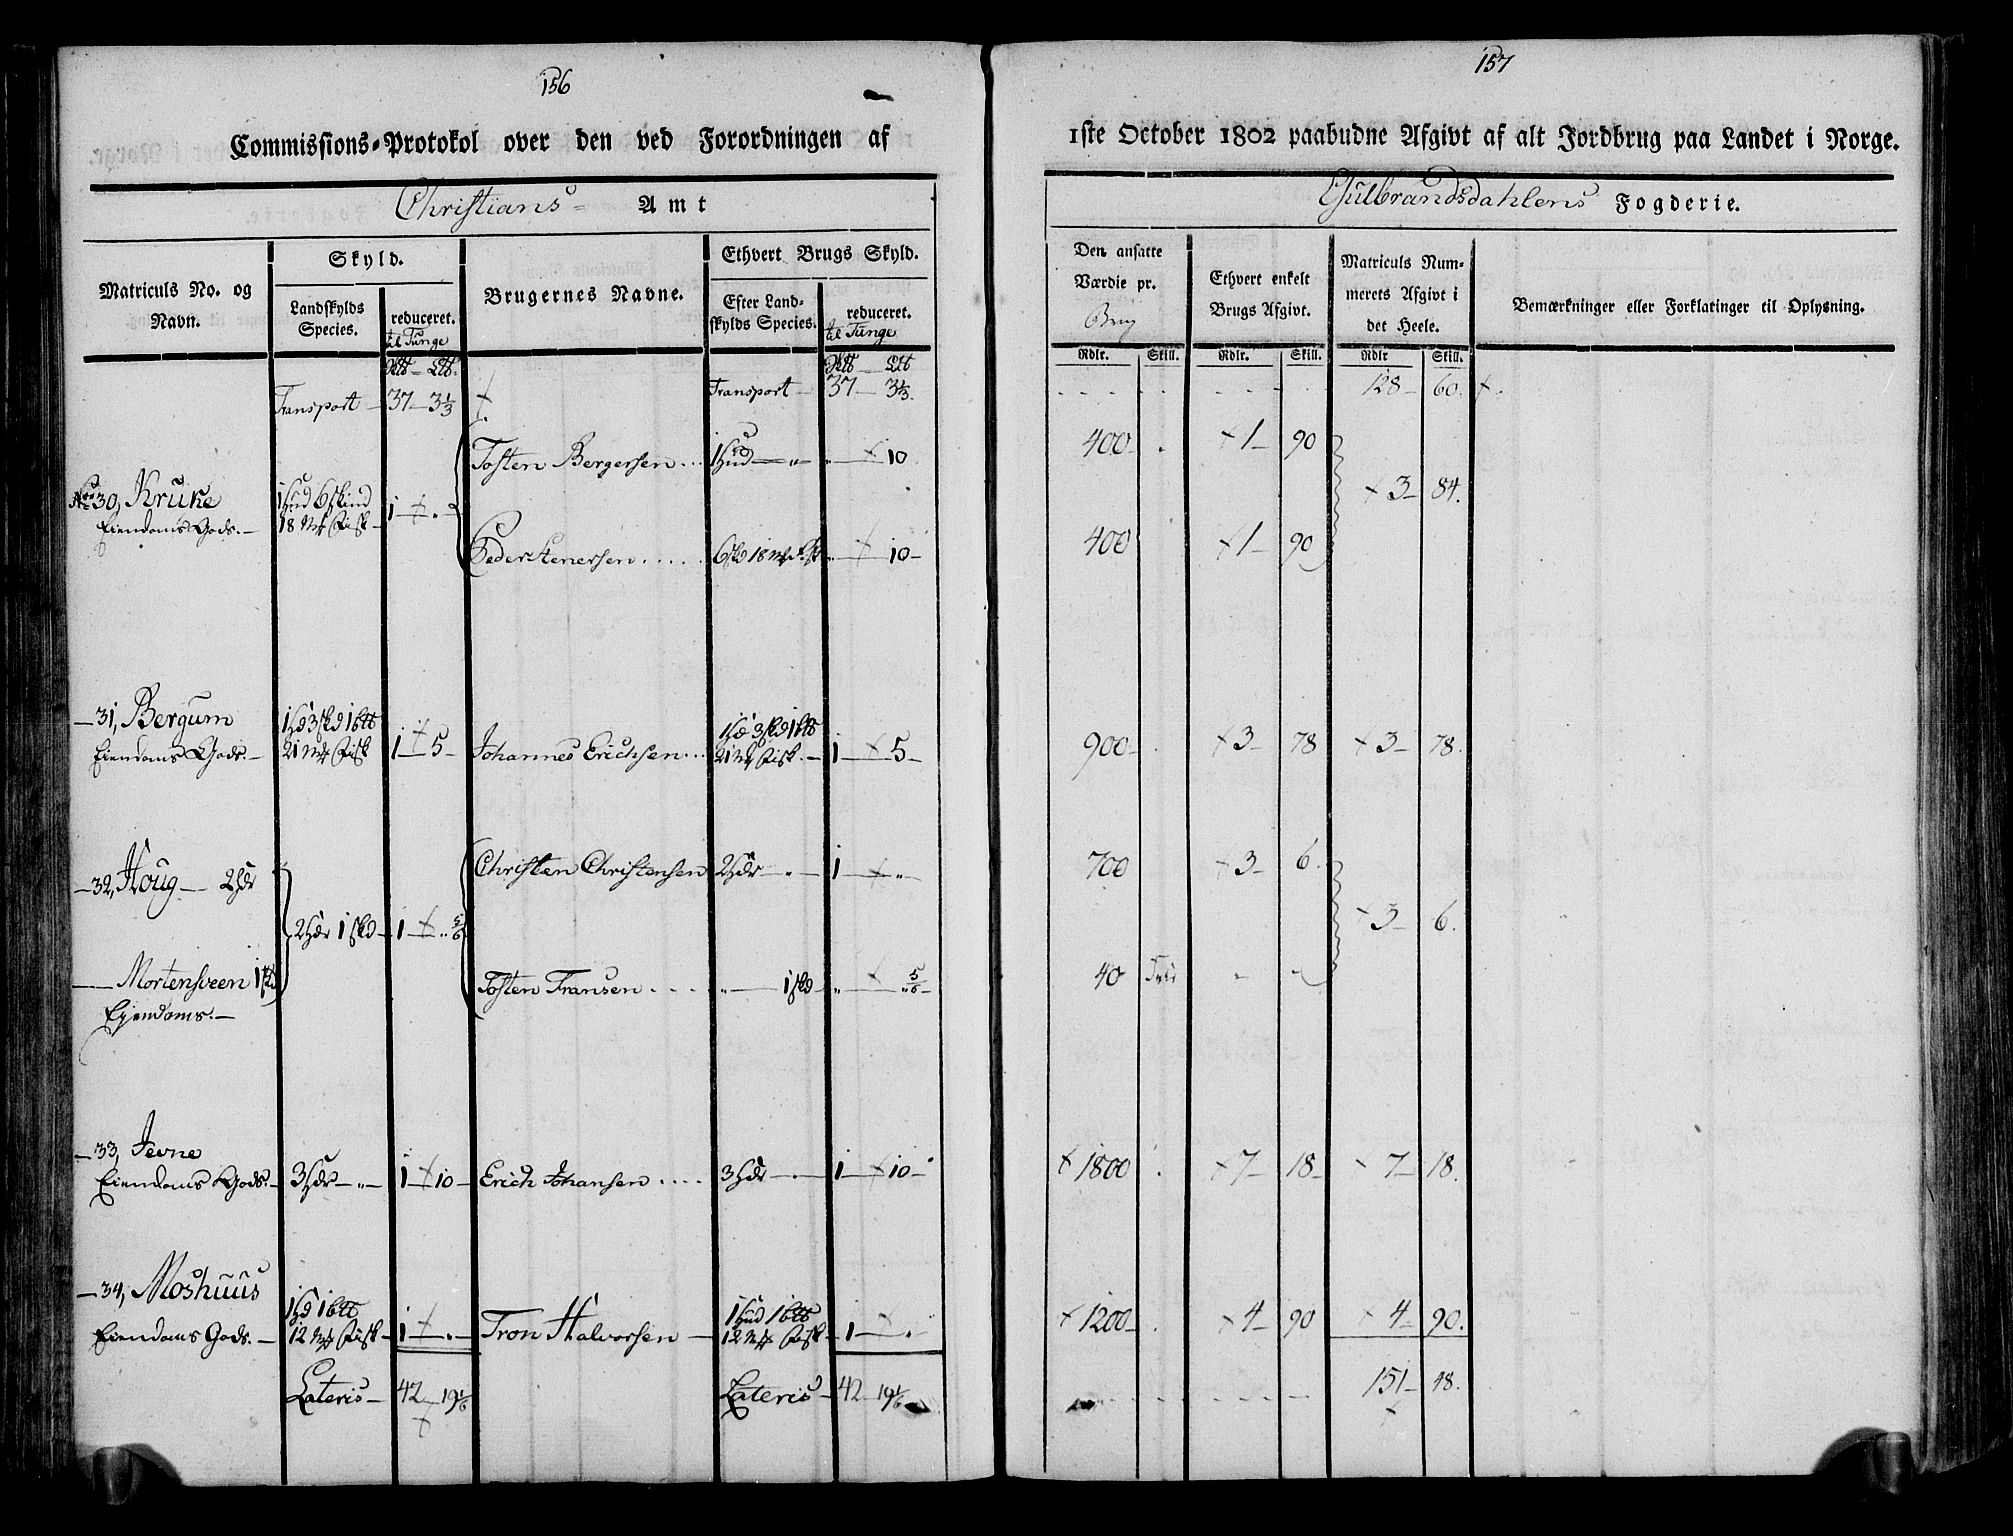 156
Commissions-Protokol over den ved Forordningen af
Christians- Amt
Matriculs No. og Navn.
Skyld.
Landskylds Species.
reduceret.
til Tunge
Brugernes Navne.
Ethvert Brugs Skyld.
Efter Landskylds Species.
reduceret.
til Tunge
Transport 37 - 3 1/3 Transport 37 3 1/3
Tosten Bergersen... 1 Hud - " " 10
No 30, Kruke 1 Hud 6 Skind
Eiendoms Gods. 18 Mk Fisk 1 "
Peder Stenersen..... 6 skd 18 Mk Fisk " 10
31, Bergum 1 Hd 3 skd 1 btt 1 Hd 3 skd 1 btt
Eiendoms Gods. 21 Mk Fisk 1 - 5 Johannes Erichsen... 21 Mk Fisk. 1 - 5
Christen Christensen 2 Hdr - " 1 "
32, Houg - 2 Hdr
2 Hdr 1 skd 1 " 5/6
Mortensveen 1 skd Tosten Fransen.... " 1 skd " " 5/6
Ejendoms.
33, Jevne
Eiendoms Gods. 3 Hdr - " 1 - 10 Erich Johansen.... 3 Hdr - 1 - 10
34, Moshuus 1 Hd 1 btt 1 Hud 1 btt
Eiendoms Gods. 12 Mk Fisk 1 " Tron Halvorsen 12 Mk Fisk 1 "
Lateris 42 - 19 1/6 Lateris 42 - 19 1/6
157
1ste October 1802 paabudne Afgivt af alt Jordbrug paa Landet i Norge.
Gulbrandsdahlens Fogderie.
Den ansatte Værdie pr.
Brug
Ethvert enkelt Brugs Afgivt.
Matriculs Nummerets Afgivt i det Heele.
Bemærkninger eller Forklaringer til Oplysning.
Rdlr. Skill. Rdlr. Skill. Rdlr Skill.
128 - 60.
400 1 - 90
3 - 84.
400 1 - 90
900 3 - 78 3 - 78.
700 3 - 6.
3 - 6.
40
1800 7 - 18 7 - 18.
1200 4 - 90 4 - 90.
151 - 48.